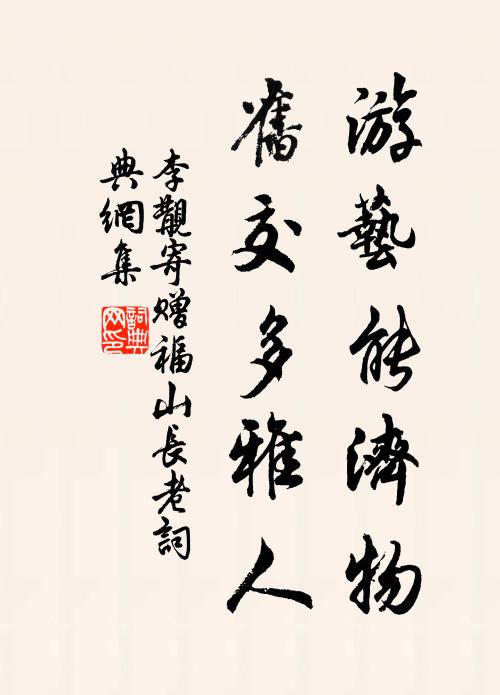 游藝能濟物
舊交多雅人
李觀寄贈福山長老詞
典網集
詞典
网印